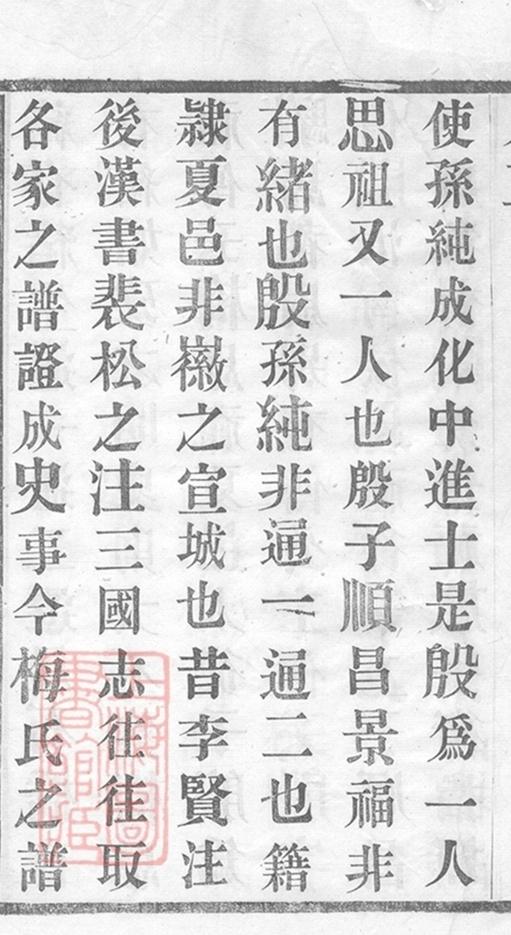 使孫純成化中進士是殷爲一人
思祖又一人也殷子順昌景福非
有緒也殷孫純非通一通二也籍
隸夏邑非嶶之宣城也昔李賢注
後漢書裴松之注三國志往往取
各家之譜證成史事今梅氏之譜